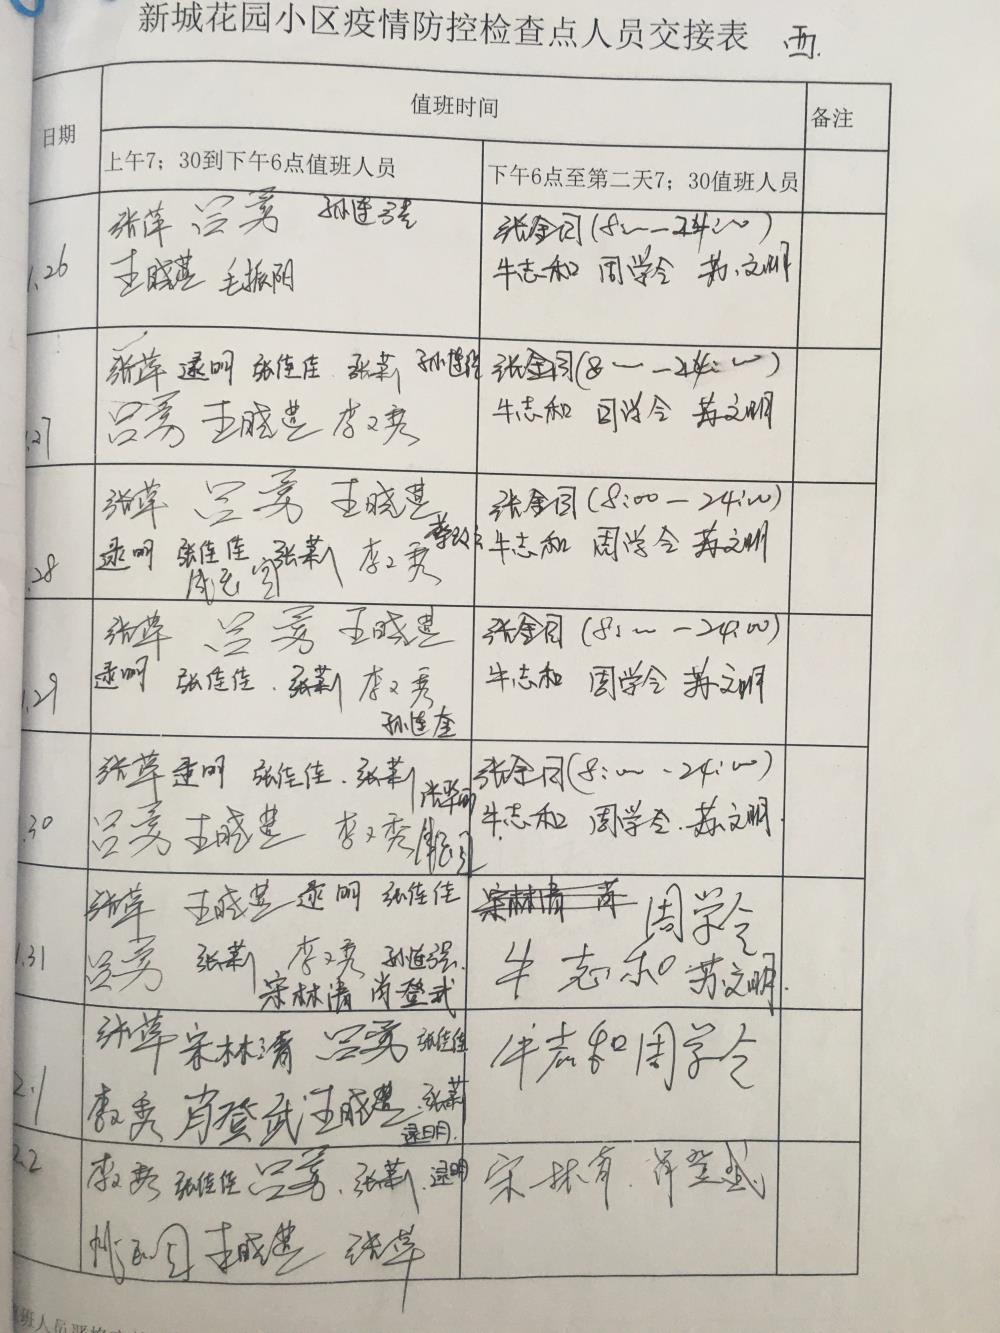 新城花园小区疫情防控检查点人员交接表 西.
日期 值班时间 备注
上午7；30到下午6点值班人员 下午6点至第二天7；30值班人员
张萍 吕勇 孙连强 (8:00—24:00)
1.26 王晓楚 毛振阳 牛志和 周学令 苏文明
张萍 逯明 张佳佳 张莉 孙连强 (8:00—24:00)
.27 吕勇 王晓楚 李文秀 牛志和 周学令 苏文明
张萍 吕勇 王晓楚 (8:00—24:00)
.28 逯明 张佳佳 张莉 李文秀 牛志和 周学令 苏文明
张萍 吕勇 王晓楚 (8:00—24:00)
1.29 逯明 张佳佳. 张莉 李文秀 牛志和 周学令 苏文明
孙连奎
张萍 逯明 张佳佳. 张莉 (8:00-24:00)
.30 吕勇 王晓楚 李文秀 牛志和 周学令. 苏文明.
张萍 王晓楚 逯明 张佳佳 宋林清 周学令
1.31 吕勇 张莉 李文秀 孙连强. 牛志和 苏文明.
宋林清 肖登武
张萍 宋林清 吕勇 张佳佳 牛志和 周学令
2.1 李文秀 肖登武 王晓楚 张莉
逯明.
2.2 李文秀 张佳佳 吕勇. 张莉. 逯明 宋林清. 肖登武
王晓楚 张萍
值班人员严格